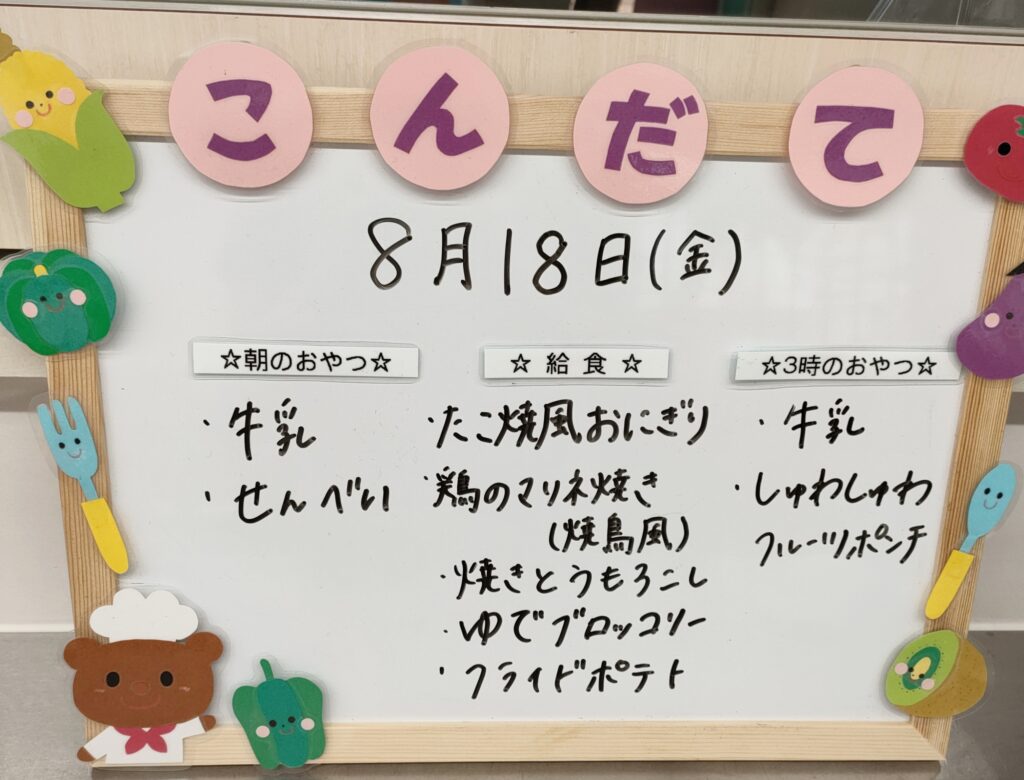 こんだて
8月18日(金)
☆朝のおやつ☆
・牛乳
・せんべい
☆ 給 食 ☆
・たこ焼風おにぎり
・鶏のマリネ焼き
(焼鳥風)
・焼きとうもろこし
・ゆでブロッコリー
・フライドポテト
☆3時のおやつ☆
・牛乳
・しゅわしゅわ
フルーツポンチ